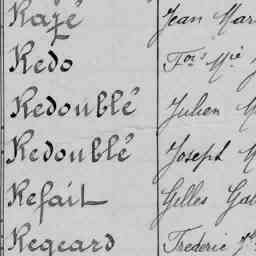 Razé Jean Mar
Redo Fçois Mie
Redoublé Julien M
Redoublé Joseph M
Refait Gilles Gab
Regeard Frédéric